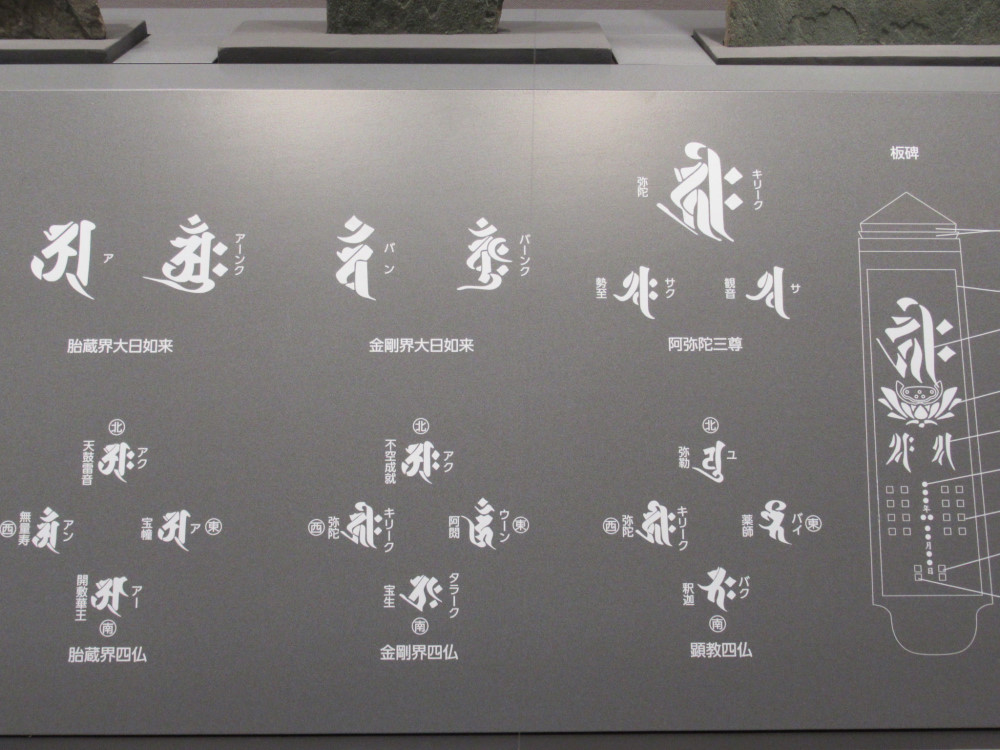 ア
アーンク
胎蔵界大日如来
バン
バーンク
金剛界大日如来
弥陀
キリーク
勢至
サク
観音
サ
阿弥陀三尊
板碑
北
天鼓雷音
アク
西
無量寿
アン
宝幢
ア
東
開敷華王
アー
南
胎蔵界四仏
北
不空成就
アク
西
弥陀
キリーク
阿閦
ウーン
東
宝生
タラーク
南
金剛界四仏
北
弥勒
ユ
西
弥陀
キリーク
薬師
バイ
東
釈迦
バク
南
顕教四仏
●●●●年●●
●●月●●日